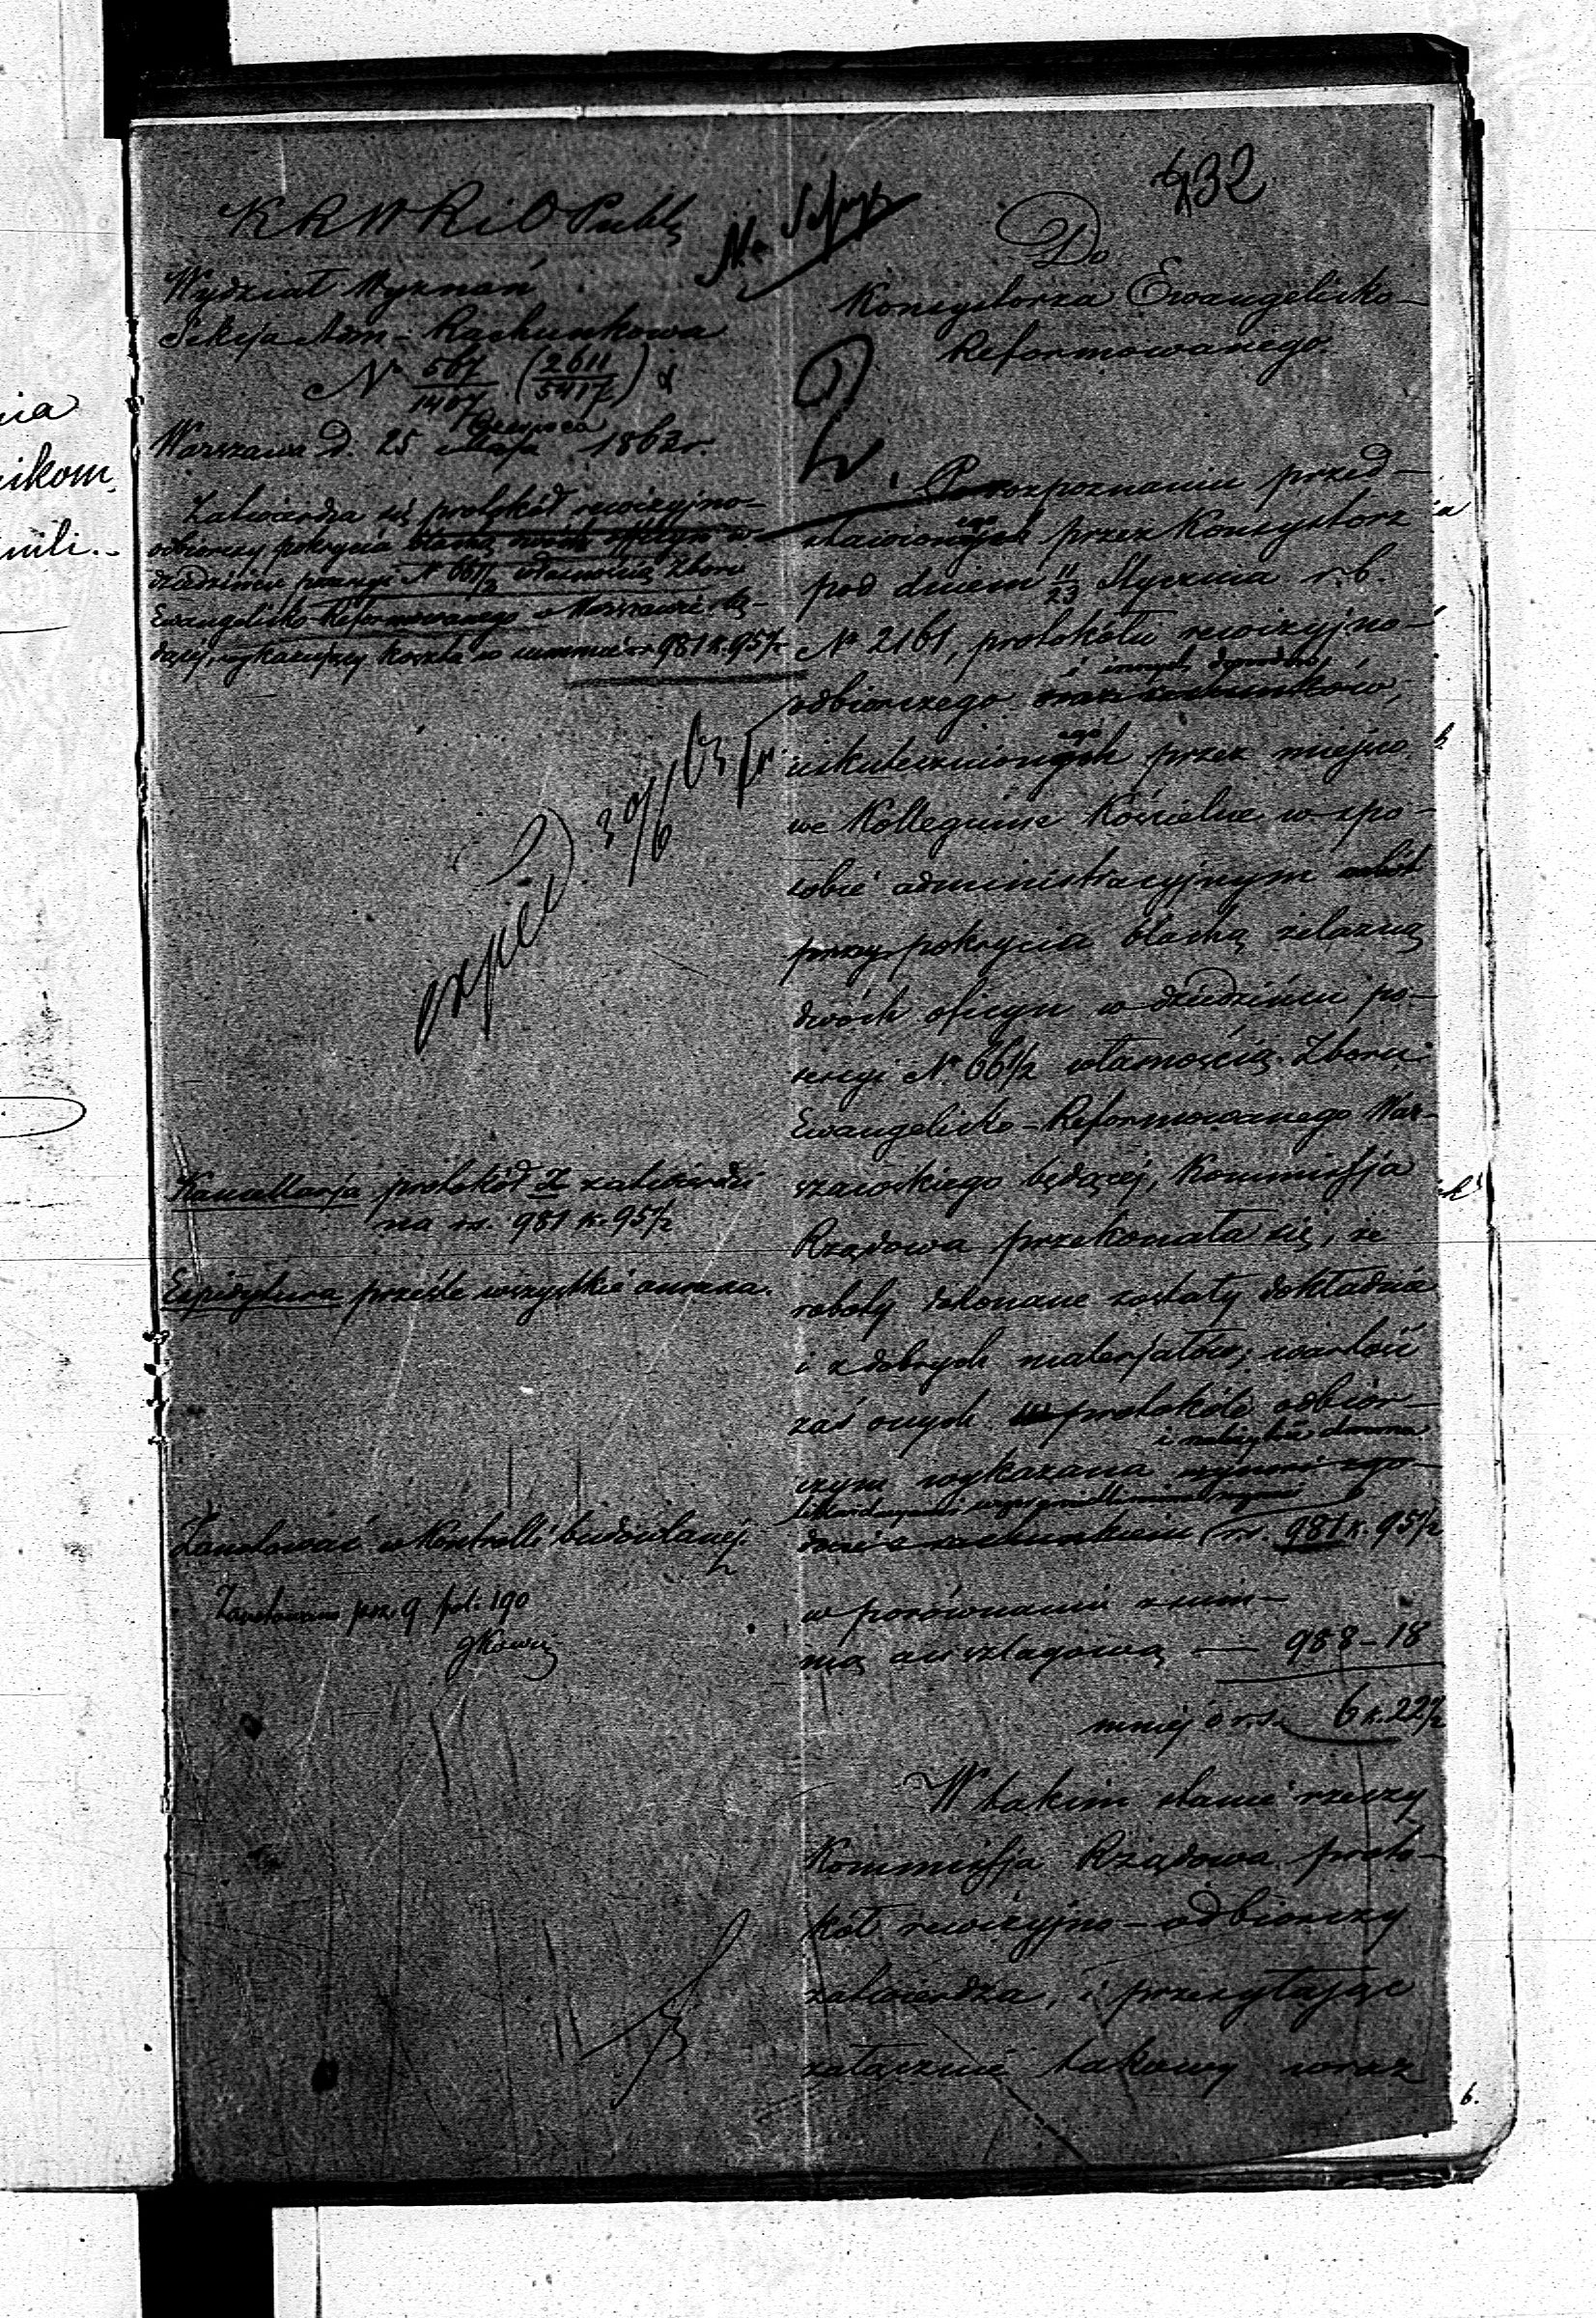 132
K R W R i O Publ
Wydział Wyznań
Sekcja Adm - Rachunkowa
N° 567/1407 (2611/5417)
Czerwca
Warszawa d. 25 Maja 1863 r.
Zatwierdza się protokół rewizyjno-
odbiorczy pokrycia blachą dwóch officyn w
dziedzińcu posesyi N° 661/2 własnością Zboru
Ewangelicko-Reformowanego w Warszawie bę-
dącej, wykazujący koszta w summie rs 981 k. 95 1/2
exped. 30/6 63
Kancellarja protokół zatwierdzi
na rs. 981 k. 95 1/2
Expedytura prześle wszystkie annexa.
Zanotować w Kontrolli budowlanej.
Zanotowano poz. 9 fol. 190
Do
Konsystorza Ewangelicko-
Reformowanego
Po rozpoznaniu przed-
stawionego przez Konsystorz
pod dniem 11/23 Stycznia r. b.
N° 2161, protokółu rewizyjno-
i innych dowodów,
odbiorczego oraz rachunków,
uskutecznionego przez miejsco
we Kollegium Kościelne w spo-
sobie administracyjnym robót
przy pokrycia blachą żelazną
dwóch oficyn w dziedzińcu po-
sesyi N° 661/2 własnością Zboru
Ewangelicko-Reformowanego War-
szawskiego będącej, Kommissja
Rządowa przekonała się, że
roboty dokonane zostały dokładnie
i z dobrych materjałów; wartość
zaś onych w protokóle odbior-
czym wykazana wynosi zgo-
dnie z rachunkiem rs. 981 k. 95 1/2
w porównaniu z sum-
mą anszlagową — 988 - 18
mniej o rs. 6 k. 22 1/2
W takim stanie rzeczy
Kommissja Rządowa proto-
kół rewizyjno-odbiorczy
zatwierdza, i przesyłając
załącznie takowy wraz